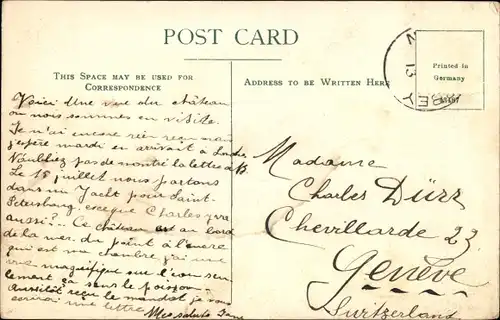 POST CARD
THIS SPACE MAY BE USED FOR
CORRESPONDENCE
ADDRESS TO BE WRITTEN HERE
Printed in
Germany
13
Voici une vue du château
où nous sommes en visite.
Je n'ai encore rien reçu mais
j'espère mardi en arrivant à
N'oubliez pas de la lettre à B.
Le 15 juillet nous partons
dans un Yacht pour Saint-
Petersburg, Charles ira
aussi?.. Ce château est au bord
de la mer. du point à l'ancre
qui est ma chambre, j'ai une
vue magnifique sur l'eau seu-
lement ça sens le poisson.
Aussitôt reçu le mandat je vous
écrirai une lettre
Madame
Charles Dürr
Chevillarde 23
Genève
Switzerland